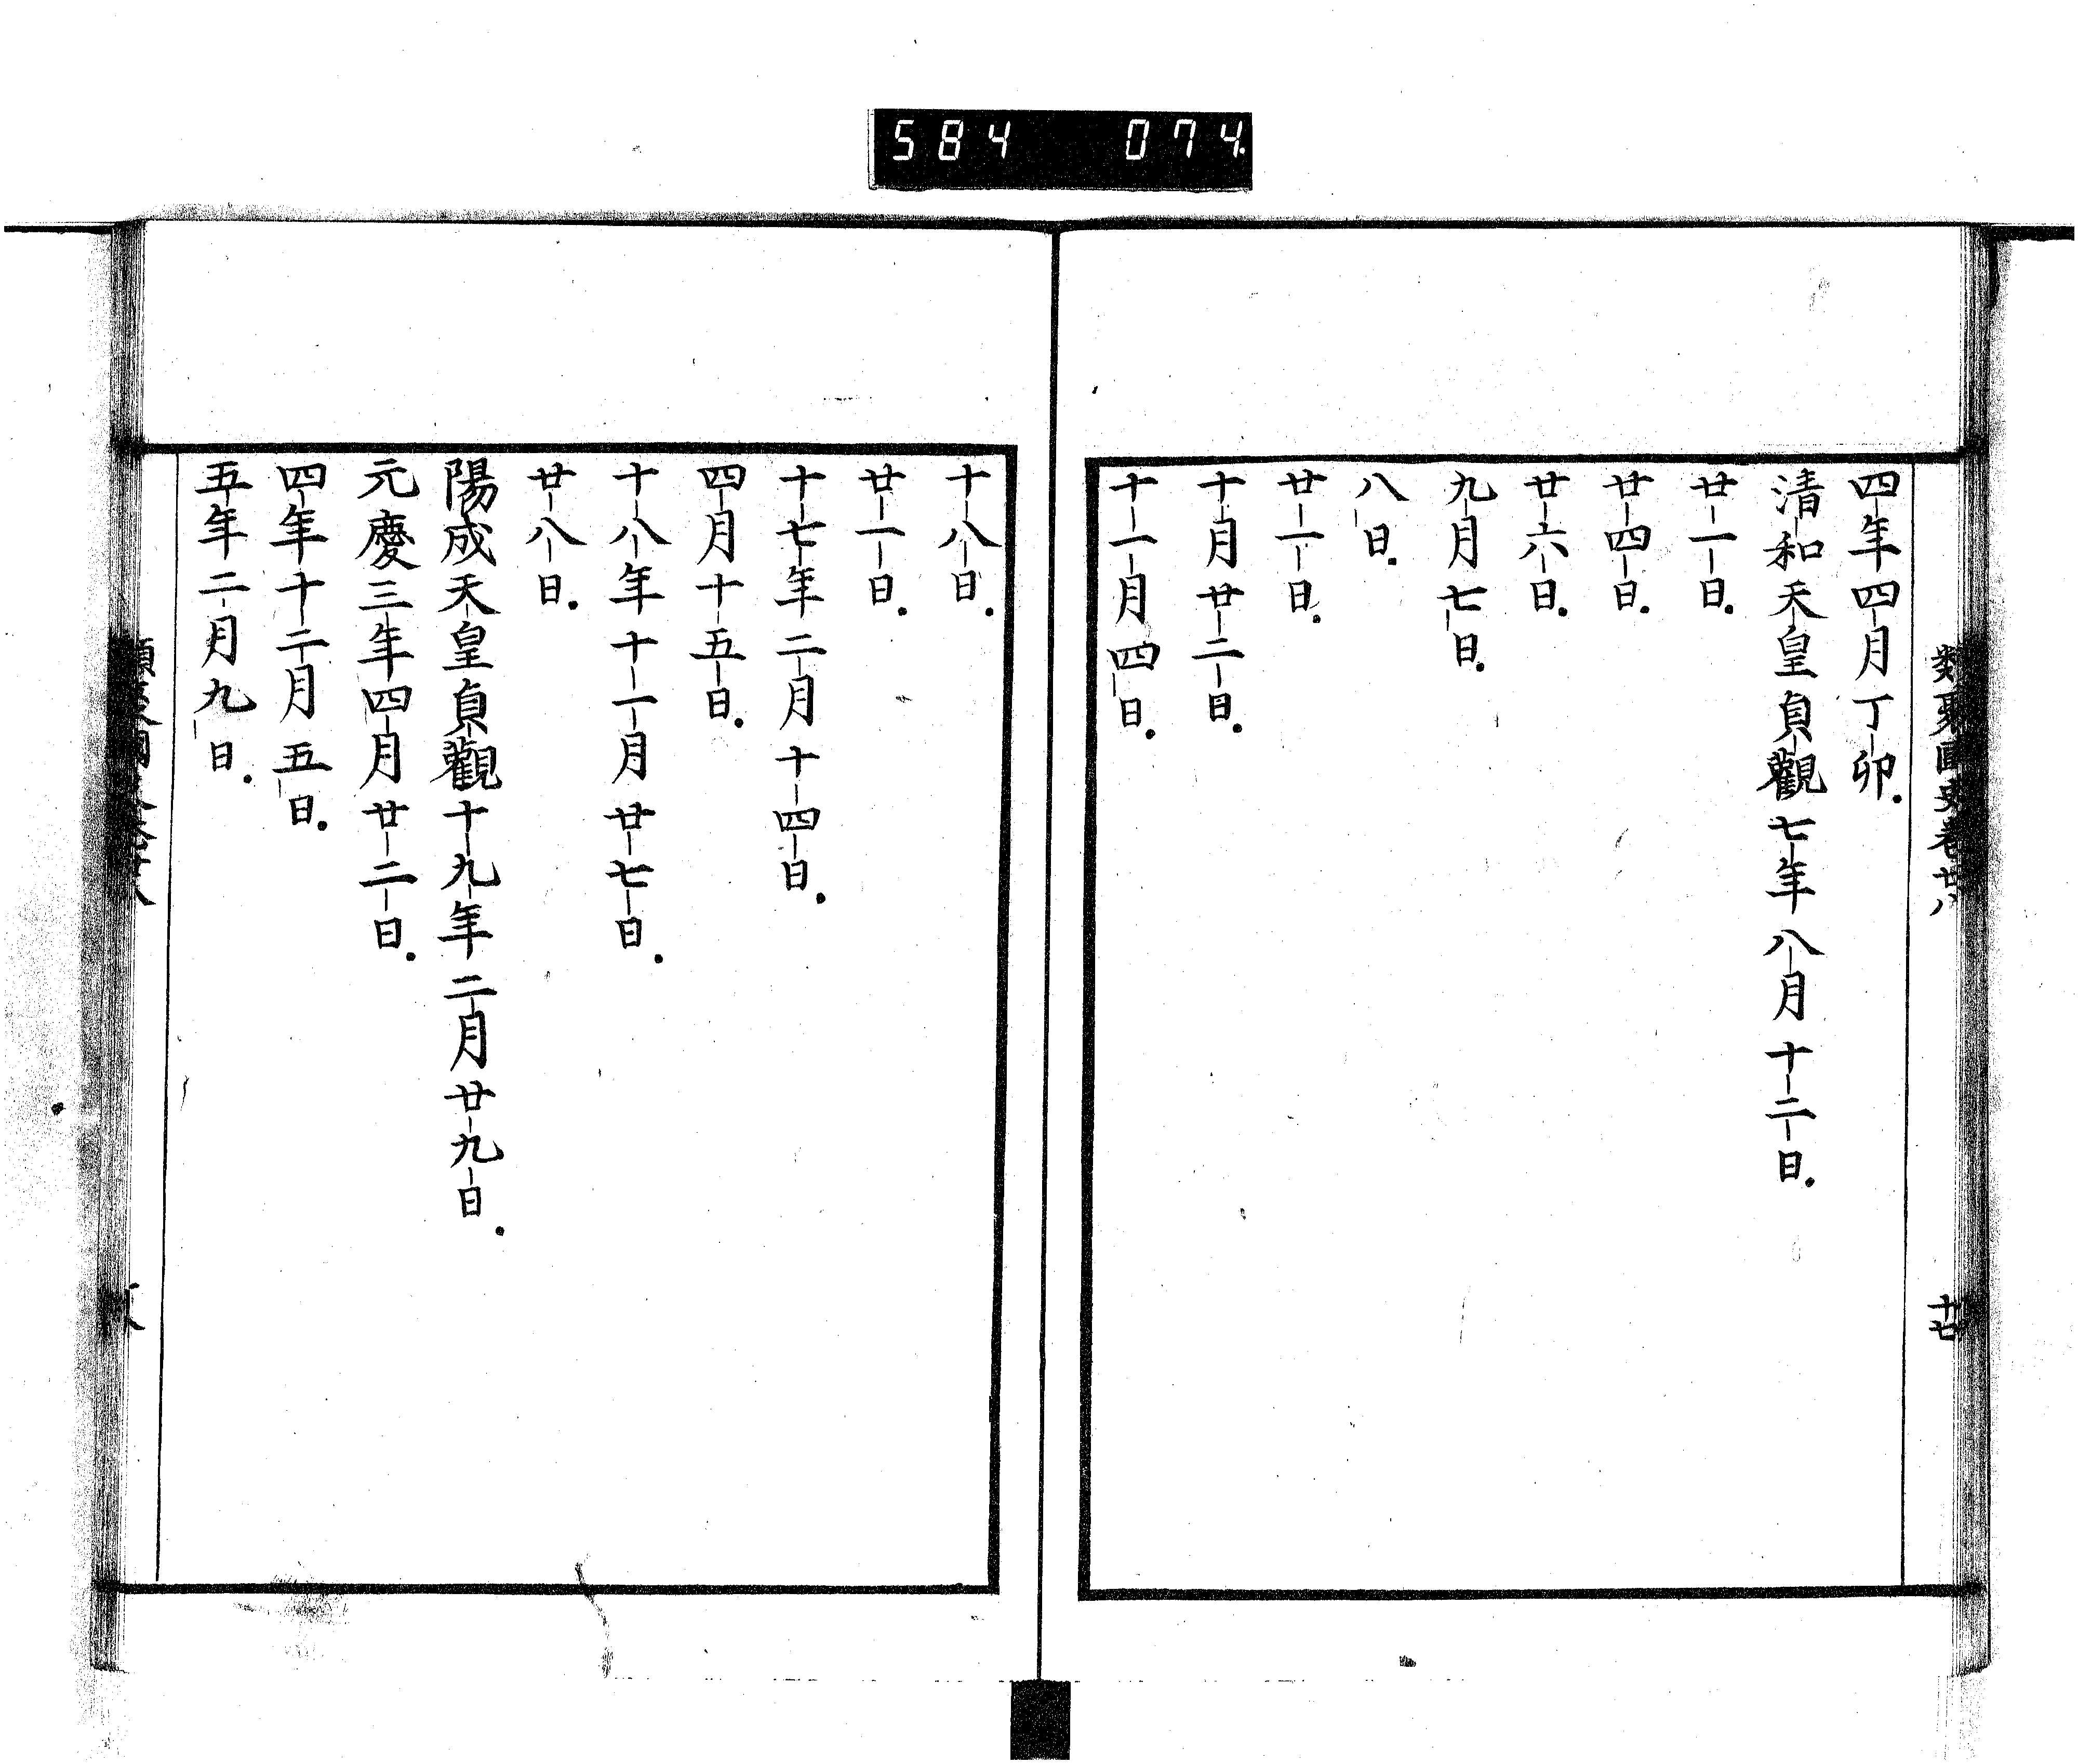 584 074
類聚國史卷廿八
十七
四年四月丁卯
清和天皇貞觀七年八月十二日
廿一日
廿四日
廿六日
九月七日
八日
廿一日
十月廿二日
十一月四日
十八日
廿一日
十七年二月十四日
四月十五日
十八年十一月廿七日
廿八日
陽成天皇貞觀十九年二月廿九日
元慶三年四月廿二日
四年十二月五日
五年二月九日